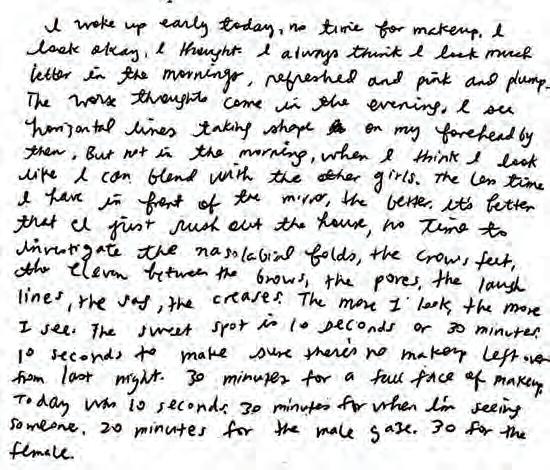 I woke up early today, no time for makeup. I
look okay, I thought. I always think I look much
better in the mornings, refreshed and pink and plump.
The worse thoughts come in the evening. I see
horizontal lines taking shape on my forehead by
then. But not in the morning, when I think I look
like I can blend with the other girls. The less time
I have in front of the mirror, the better. It's better
that I just rush out the house, no time to
investigate the nasolabial folds, the crows feet,
the eleven between the brows, the pores, the laugh
lines, the sag, the creases. The more I look, the more
I see. The sweet spot is 10 seconds or 30 minutes.
10 seconds to make sure there's no makeup left over
from last night. 30 minutes for a full face of makeup.
Today was 10 seconds. 30 minutes for when I'm seeing
someone. 20 minutes for the male gaze. 30 for the
female.